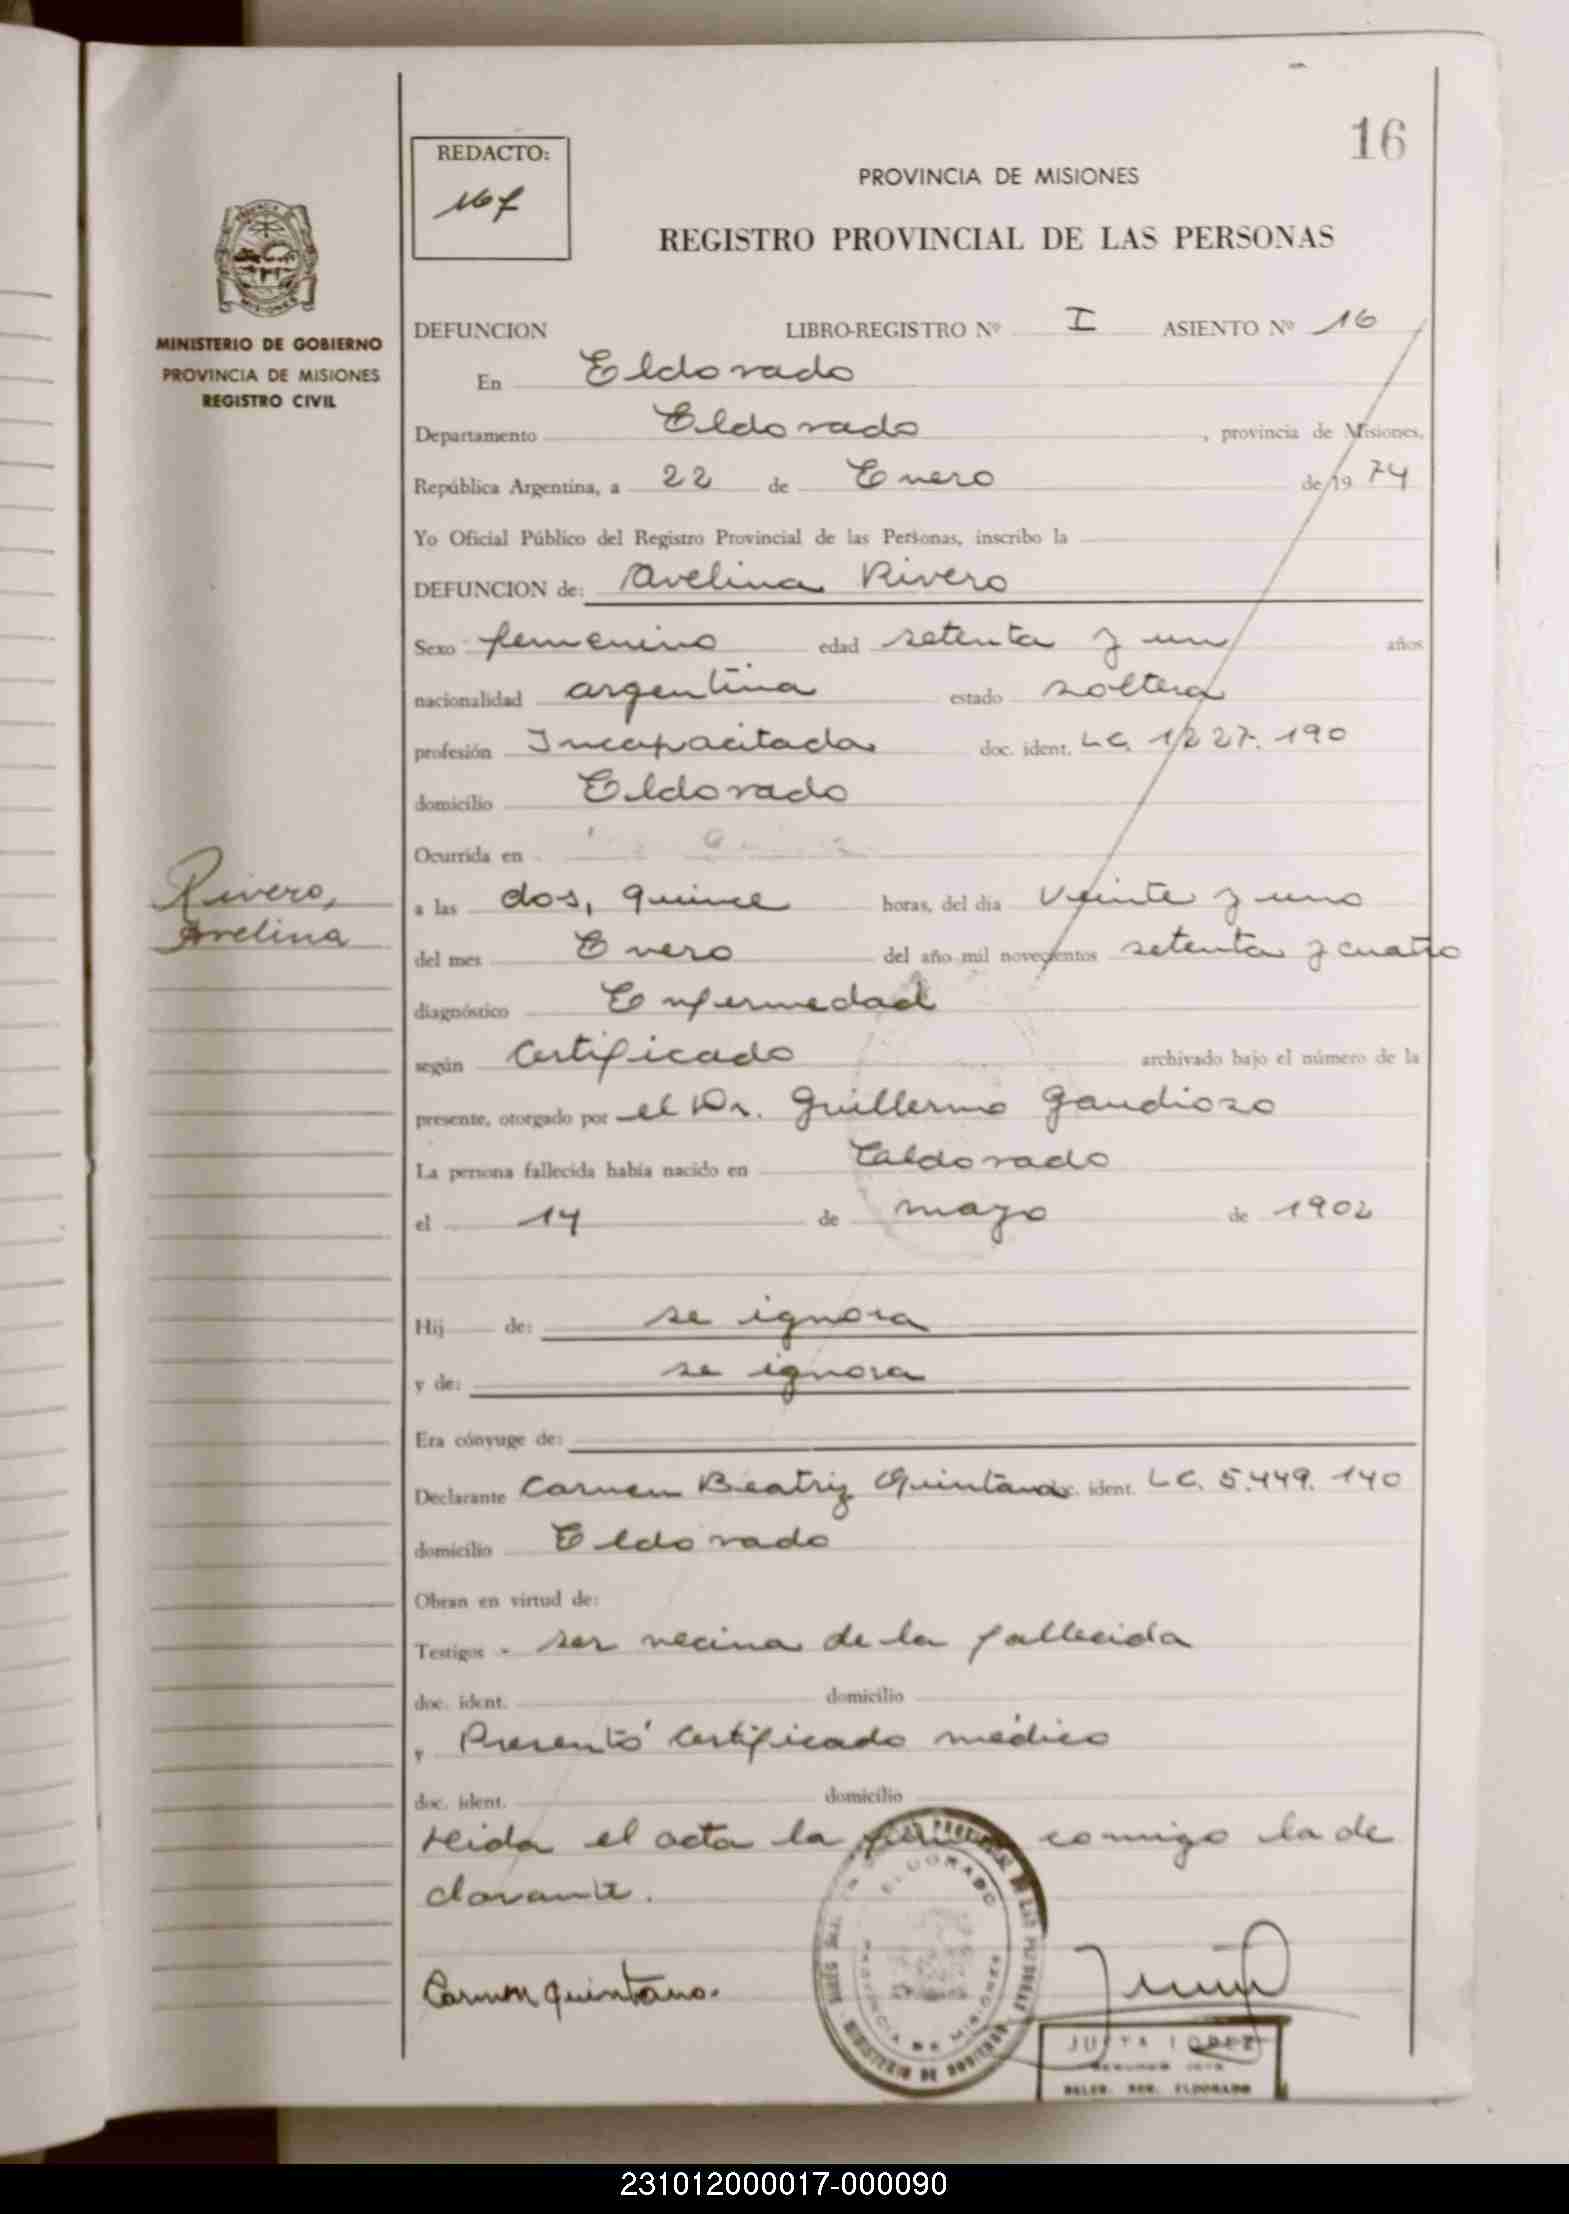 16
REDACTO:
PROVINCIA DE MISIONES
REGISTRO PROVINCIAL DE LAS PERSONAS
MINISTERIO DE GOBIERNO
PROVINCIA DE MISIONES
REGISTRO CIVIL
DEFUNCION LIBRO-REGISTRO Nº I ASIENTO Nº 16
En Eldorado
Departamento Eldorado, provincia de Misiones,
República Argentina, a 22 de Enero de 1974
Yo Oficial Público del Registro Provincial de las Personas, inscribo la
DEFUNCION de: Avelina Rivero
Sexo femenino edad setenta y un años
nacionalidad argentina estado soltera
profesión Incapacitada doc. ident. L.C. 1227.190
domicilio Eldorado
Ocurrida en
Rivero,
Avelina
a las dos, quince horas, del día veinte y uno
del mes Enero del año mil novecientos setenta y cuatro
diagnóstico Enfermedad
según Certificado archivado bajo el número de la
presente, otorgado por el Dr. Guillermo Gaudioso
La persona fallecida había nacido en Eldorado
el 14 de mayo de 1902
Hij de: se ignora
y de: se ignora
Era cónyuge de:
Declarante Carmen Beatriz Quintana doc. ident. L.C. 5.449.140
domicilio Eldorado
Obran en virtud de:
Testigos - ser vecina de la fallecida
doc. ident. domicilio
y Presentó certificado médico
doc. ident. domicilio
Leida el acta la conmigo la de
clarante.
Carmen Quintana.
ELDORADO
PROVINCIA DE MISIONES
MINISTERIO DE GOBIERNO
JUSTA LOPEZ
ELDORADO
231012000017-000090